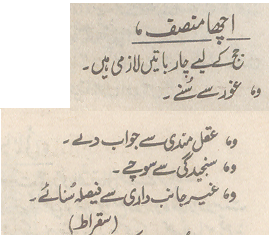 اچھا منصف،
جج کے لیے چار باتیں لازمی ہیں۔
وہ غور سے سُنے۔
وہ عقل مندی سے جواب دے۔
وہ سنجیدگی سے سوچے۔
وہ غیر جانب داری سے فیصلہ سُنائے۔
(سقراط)